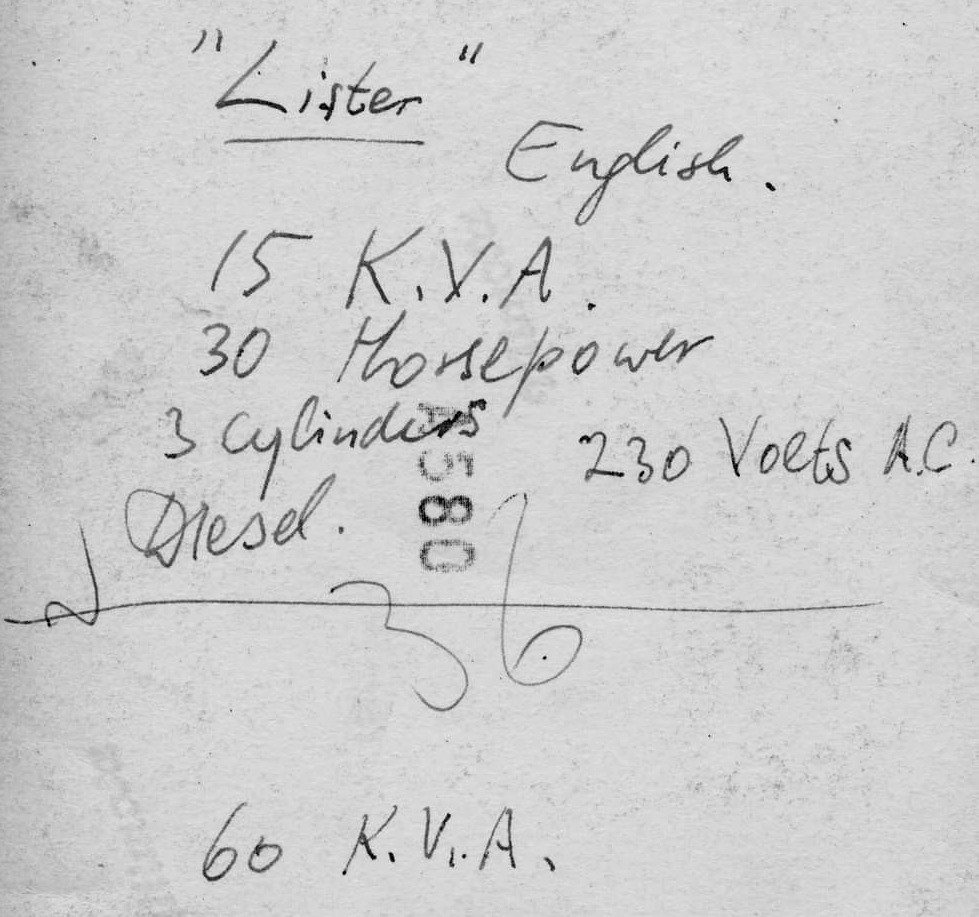 "Lister"
English.
15 K.V.A.
30 Horsepower
3 Cylinders
230 Volts A.C.
Diesel.
A5580
36
60 K.V.A.